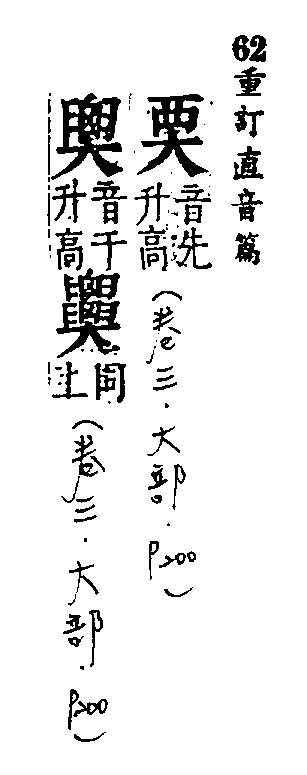 62重訂直音篇
音先
升高
(卷三.大部.P200)
音千
升高
同
上
(卷三.大部.P200)